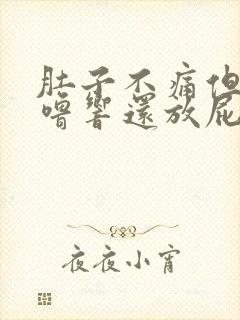 肚子不痛但
嚕響還放屁
夜夜小宵